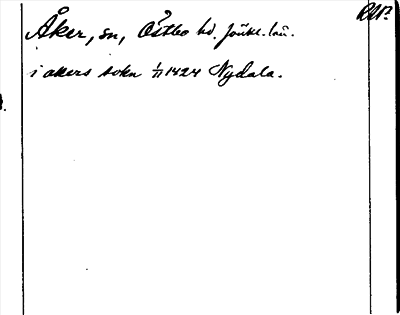 Åker, sn, Östbo hd. Jönk. län.
i akers sokn 1/11 1424 Nydala.